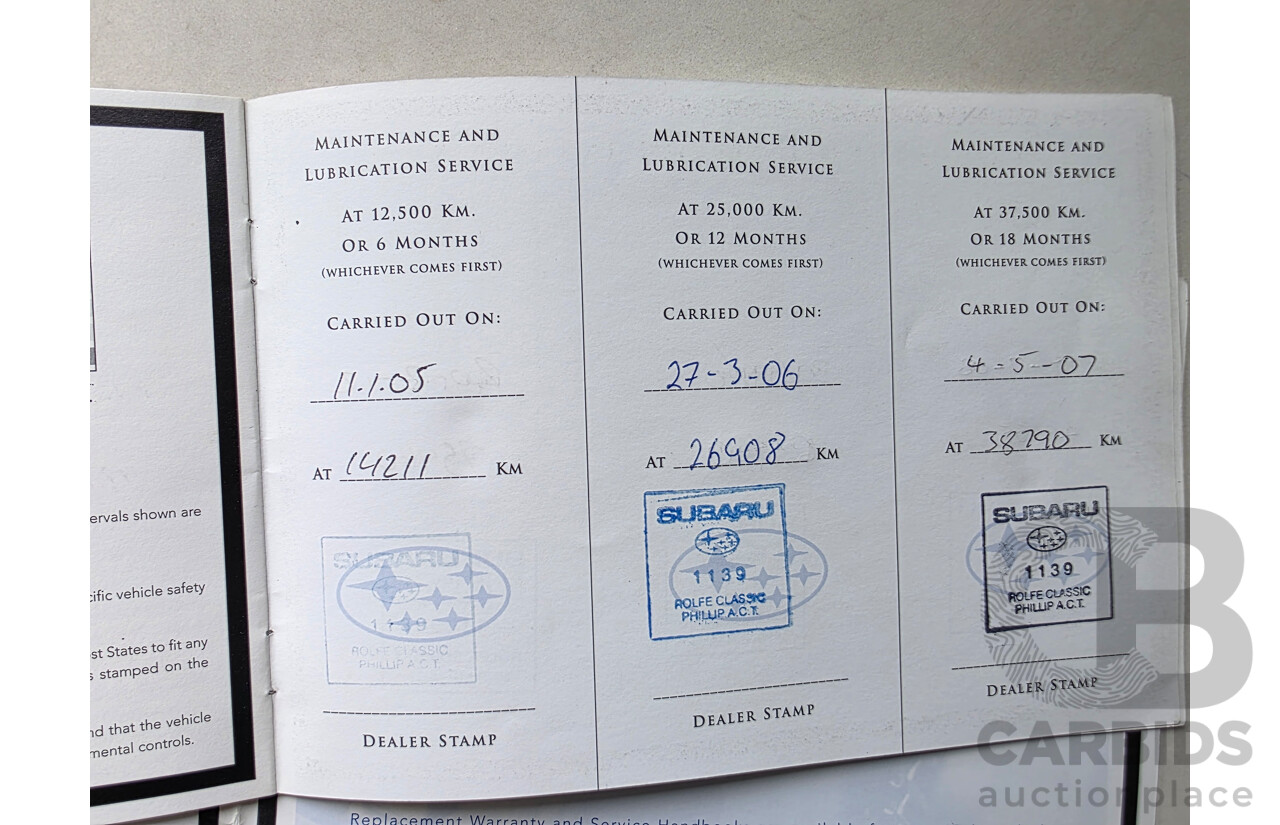 ervals shown are
ific vehicle safety
st States to fit any
s stamped on the
nd that the vehicle
mental controls.
MAINTENANCE AND
LUBRICATION SERVICE
AT 12,500 KM.
OR 6 MONTHS
(WHICHEVER COMES FIRST)
CARRIED OUT ON:
11.1.05
AT 14211 KM
SUBARU
1139
ROLFE CLASSIC
PHILLIP A.C.T.
DEALER STAMP
MAINTENANCE AND
LUBRICATION SERVICE
AT 25,000 KM.
OR 12 MONTHS
(WHICHEVER COMES FIRST)
CARRIED OUT ON:
27-3-06
AT 26908 KM
SUBARU
1139
ROLFE CLASSIC
PHILLIP A.C.T.
DEALER STAMP
MAINTENANCE AND
LUBRICATION SERVICE
AT 37,500 KM.
OR 18 MONTHS
(WHICHEVER COMES FIRST)
CARRIED OUT ON:
4-5-07
AT 38790 KM
SUBARU
1139
ROLFE CLASSIC
PHILLIP A.C.T.
DEALER STAMP
Replacement Warranty and Service Handbooks
B
CARBIDS
auctionplace